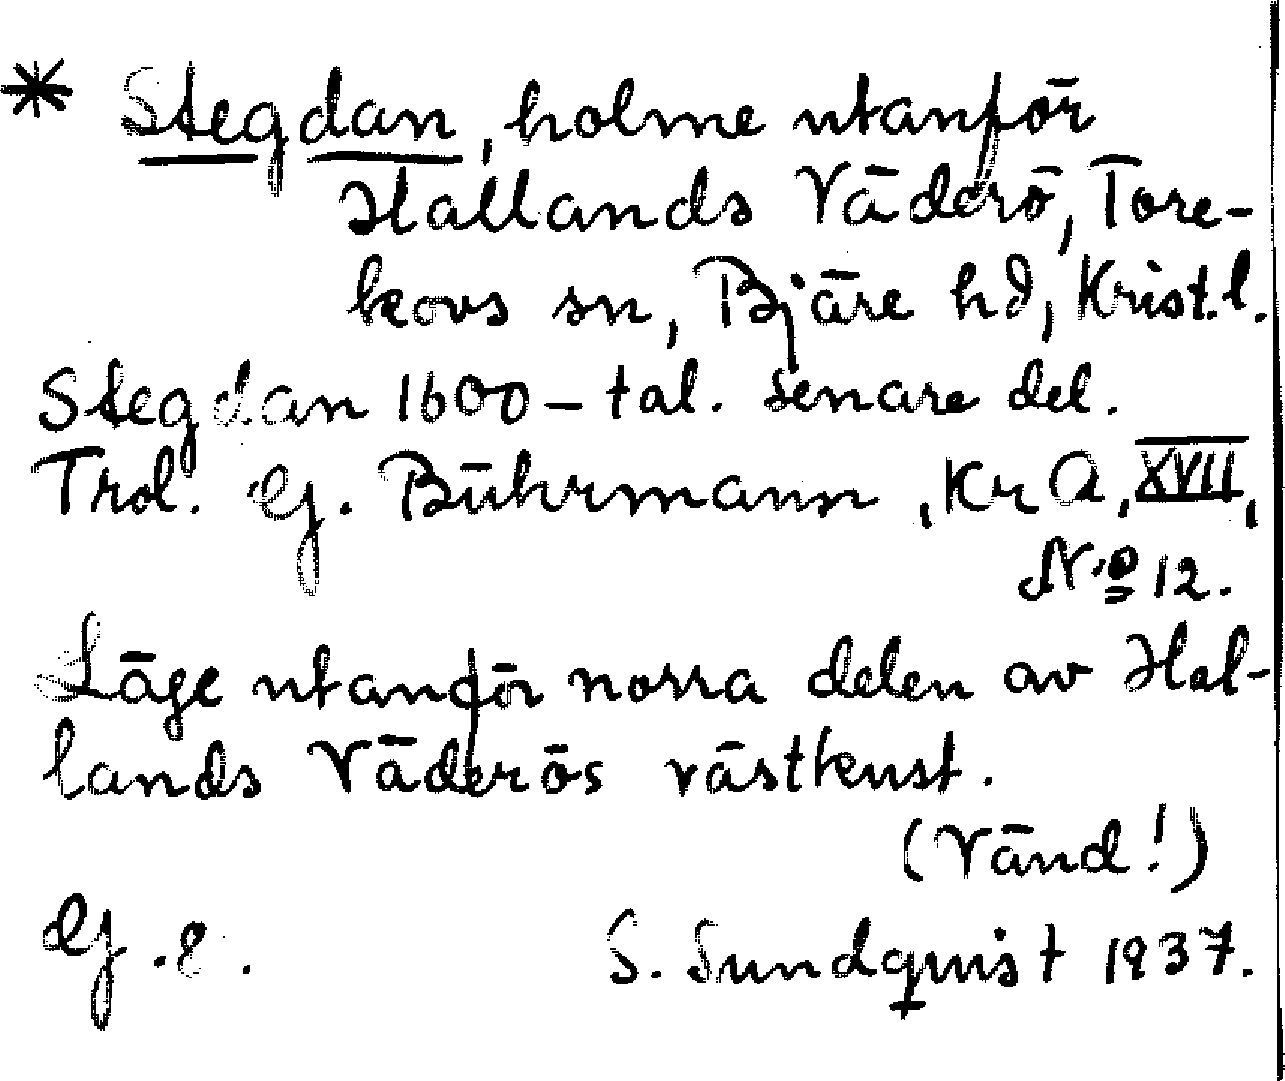 * Stegdan, holme utanför
Hallands Väderö, Tore-
kovs sn, Bjäre hd, Krist.l.
Stegdan 1600-tal. senare del.
Trol. G. Bührmann, KrA, XVII,
No 12.
Läge utanför norra delen av Hal-
lands Väderös västkust.
(Vänd!)
G.e. S. Sundquist 1937.